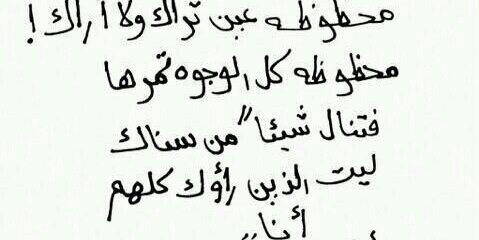 محظوظه عين تراك ولا أراك !
محظوظه كل الوجوه تمرها
فتنال شيئاً من سناك
ليت الذين رأوك كلهم
أنا